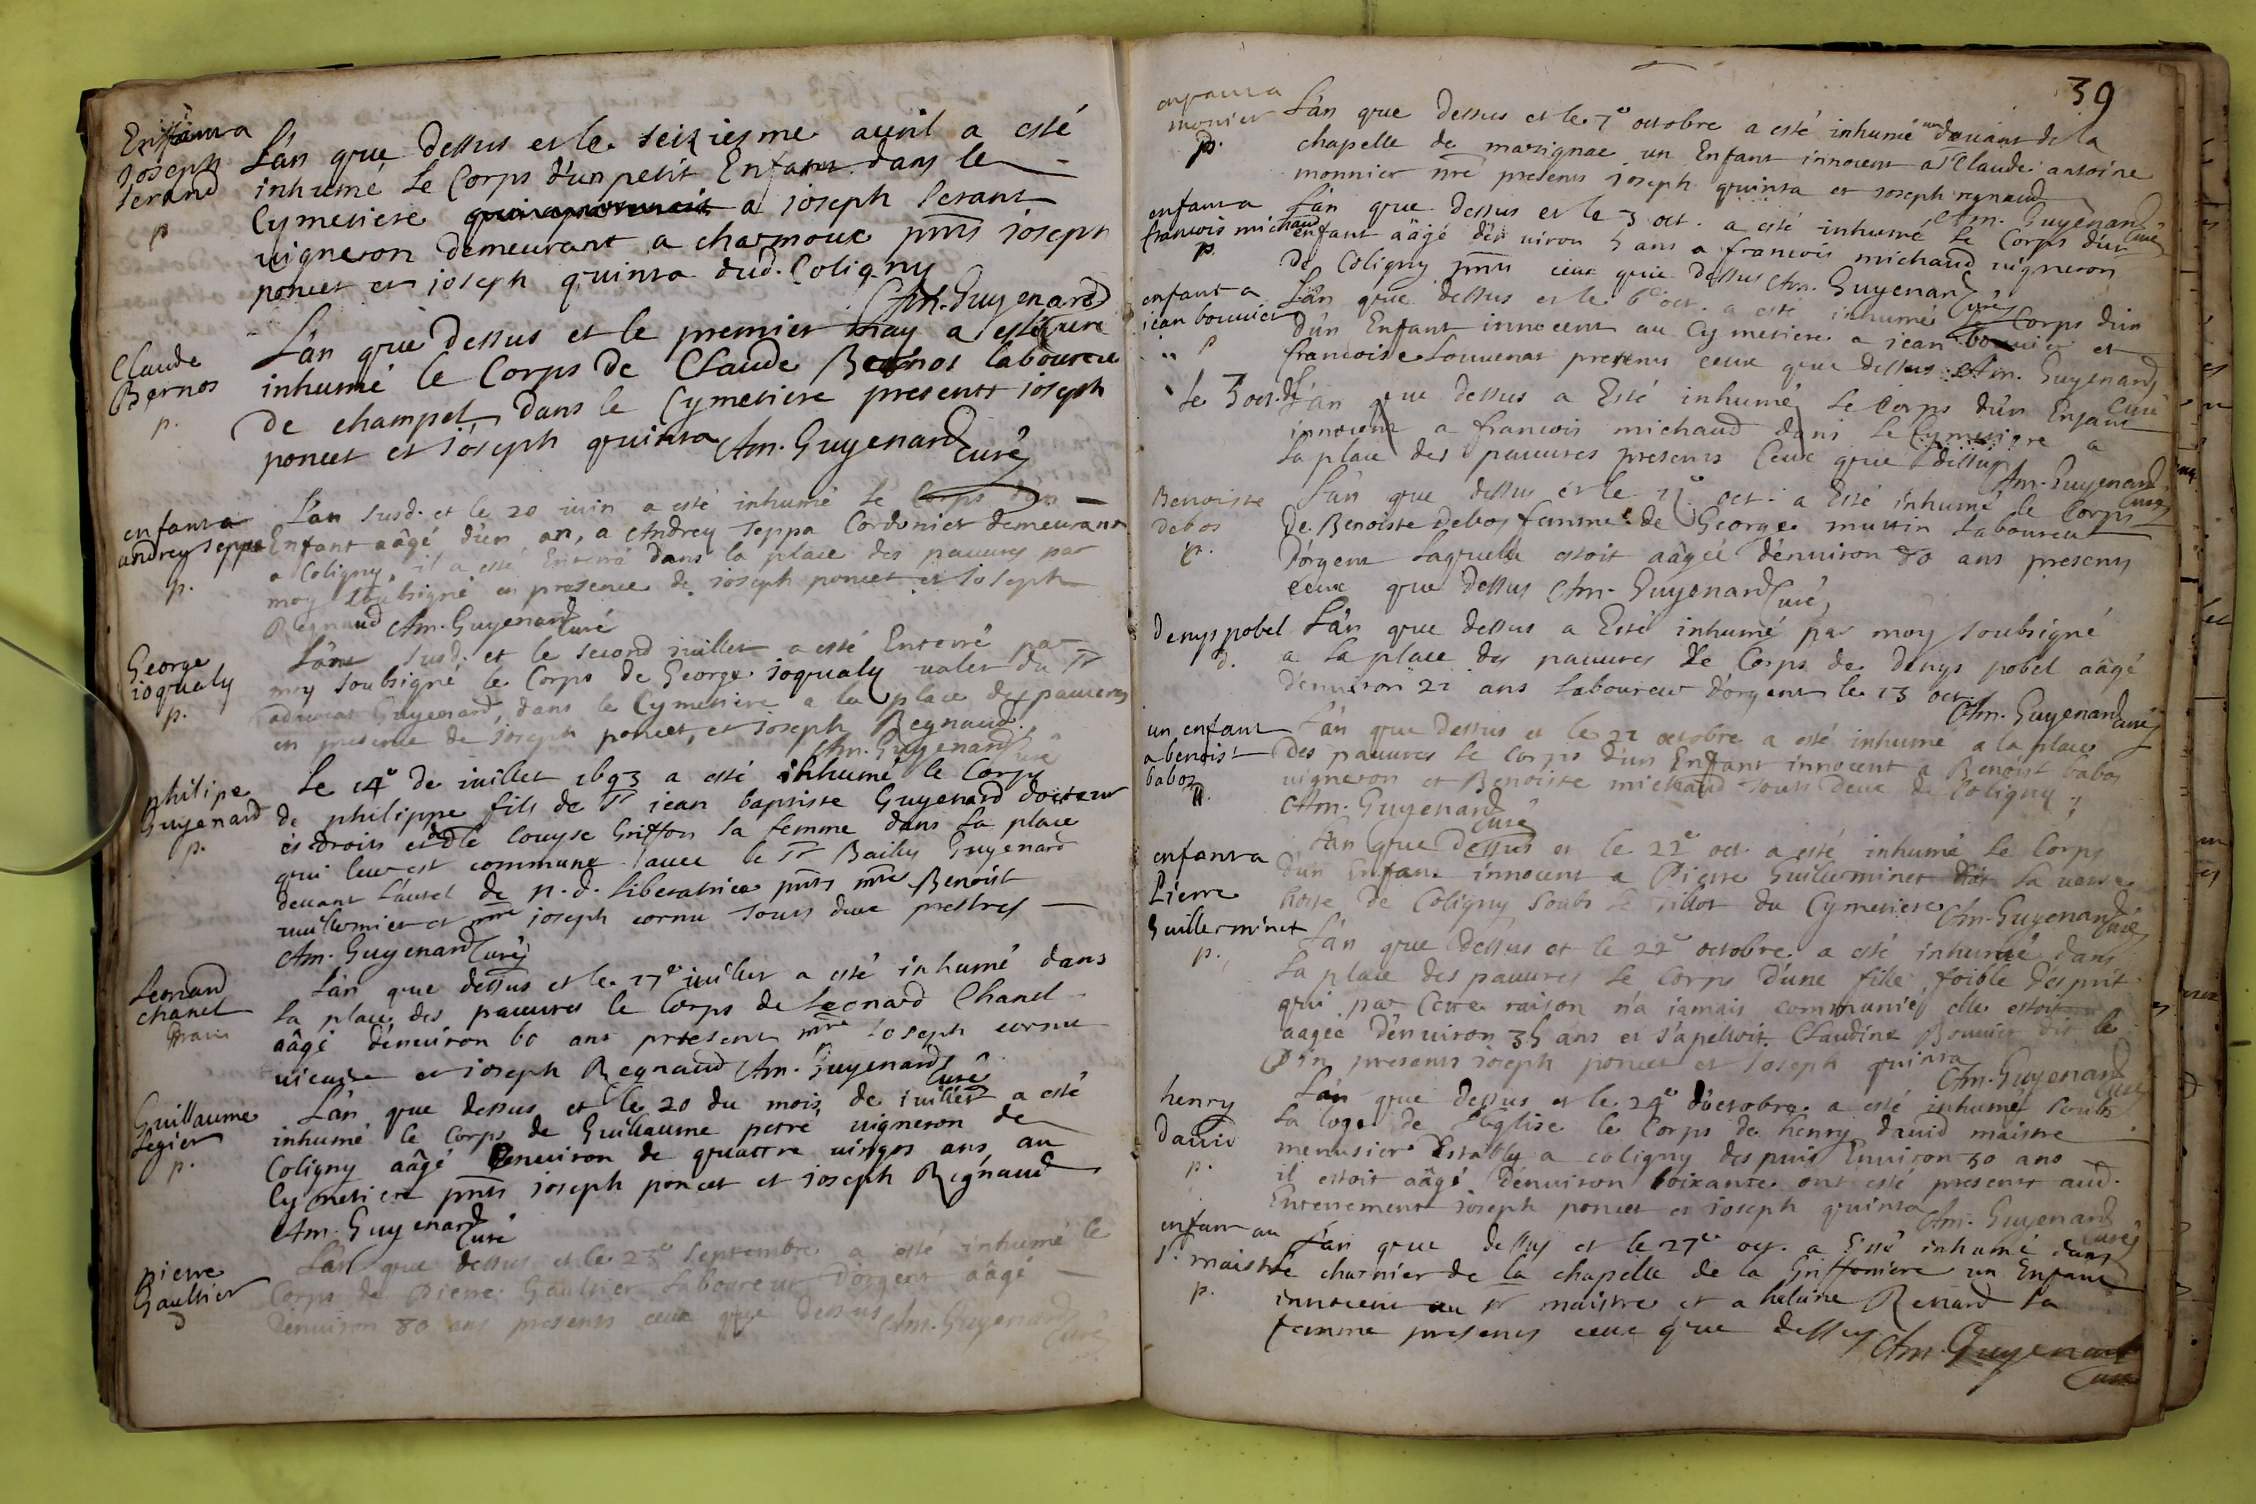 Enfant a
Joseph
Serand
p
L'an que dessus et le seiziesme auril a esté
inhumé le Corps d'un petit Enfant dans le
Cymetiere a ioseph Serant
uigneron demeurant a charmoux pnts ioseph
poncet et ioseph quinsa dud. Coligny
Am. Guyenard
curé
Claude
Bernos
p.
L'an que dessus et le premier may a esté
inhumé le Corps de Claude Bernos laboureur
de champel dans le Cymetiere presents ioseph
poncet et ioseph quinsa Am. Guyenard
curé
enfant a
andrey seppa
p.
L'an susd. et le 20 iuin a esté inhumé le Corps d'un
Enfant aâgé d'un an, a Andrey Seppa Cordonier demeurant
a Coligny, il a esté Enterré dans la place des pauures par
moy soubsigné en presence de ioseph poncet et Joseph
Regnaud Am. Guyenard curé
George
ioqualy
p.
L'an susd. et le second iuillet a esté Enterré par
moy soubsigné le Corps de George ioqualy ualet du Sr
aduocat Guyenard, dans le Cymetiere a la place des pauures
en presence de Joseph poncet, et Joseph Regnaud.
Am. Guyenard curé
philipe
Guyenard
p.
Le 14e de iuillet 1693 a esté inhumé le Corps
de philippe fils de Sr iean baptiste Guyenard docteur
és droits et de dlle Louyse Griffon sa femme dans la place
qui leur est commune auec le Sr Bailly Guyenard
deuant l'autel de n. d. liberatrice pnts mre Benoist
uuillermier et mre ioseph cornu tous deux prestres
Am. Guyenard curé
Leonard
chanel
L'an que dessus et le 17e iuillet a esté inhumé dans
la place des pauures le Corps de Leonard Chanel
aâgé d'enuiron 60 ans present mre Joseph cornu
uicaire et ioseph Regnaud Am. Guyenard
curé
Guillaume
p.
L'an que dessus et le 20 du mois de iuillet a esté
inhumé le Corps de Guillaume petré uigneron de
Coligny aâgé d'enuiron de quattre uingts ans au
Cymetiere pnts ioseph poncet et ioseph Regnaud
Am. Guyenard
curé
pierre
Gaultier
L'an que dessus et le 23e Septembre a esté inhumé le
Corps de Pierre Gaultier Laboureur d'orgent aâgé
d'enuiron 80 ans presents ceux que dessus Am. Guyenard
curé
39
enfant a
monier
p.
L'an que dessus et le 7e octobre a esté inhumé deuant de la
chapelle de marignac un Enfant innocent a Claude antoine
monnier nre presents ioseph quinsa et ioseph regnaud
Am. Guyenard
curé
enfant a
francois michaud
p.
L'an que dessus et le 3 oct. a esté inhumé le Corps d'un
enfant aâgé d'enuiron 5 ans a francois michaud uigneron
de Coligny pnts ceux que dessus Am. Guyenard
curé
enfant a
iean bouuier
p
L'an que dessus et le 6e oct. a esté inhumé le Corps d'un
d'un Enfant innocent au Cymetiere a iean bouuier et
francoise Louuenat presents ceux que dessus Am. Guyenard
curé
le 3 oct.
L'an que dessus a Esté inhumé le Corps d'un Enfant
innocent a francois michaud dans le Cymetiere a
la place des pauures presents Ceux que dessus
Am. Guyenard
curé
Benoiste
debos
p.
L'an que dessus et le 11e oct. a Esté inhumé le Corps
de Benoiste debos femme de George muttin Laboureur
d'orgent Laquelle estoit aâgée d'enuiron 80 ans presents
ceux que dessus Am. Guyenard curé
Denys pobel
d.
L'an que dessus a Esté inhumé par moy soubsigné
a la place des pauures le Corps de Denys pobel aâgé
d'enuiron 22 ans Laboureur d'orgent le 13 oct.
Am. Guyenard curé
un enfant
a benoist
babos
p.
L'an que dessus et le 22 octobre a esté inhumé a la place
des pauures le Corps d'un Enfant innocent a Benoist babos
uigneron et Benoiste michaud tous deux de Coligny
Am. Guyenard
curé
enfant a
Pierre
Guillerminet
p.
L'an que dessus et le 22e oct. a esté inhumé le Corps
d'un Enfant innocent a Pierre Guillerminet
hoste de Coligny soubs le tillot du Cymetiere Am. Guyenard
curé
L'an que dessus et le 22e octobre a esté inhumé dans
la place des pauures le Corps d'une fille foible d'esprit
qui par cette raison n'a iamais communié elle estoit
aagée d'enuiron 35 ans et s'apelloit Claudine Bouuier dit le
presents ioseph poncet et Joseph quinsa
Am. Guyenard
curé
henry
Dauid
p.
L'an que dessus et le 24e d'octobre a esté inhumé soubs
la loge de l'Eglise le Corps de henry dauid maistre
menusier Estably a coligny despuis Enuiron 30 ans
il estoit aâgé d'enuiron soixante ont esté present aud.
Enterrement ioseph poncet et ioseph quinsa
Am. Guyenard
curé
enfant au
Sr maistre
p.
L'an que dessus et le 27e oct. a Esté inhumé dans
le charnier de la chapelle de la Griffoniere un Enfant
innocent au Sr maistre et a helaine Renard sa
femme presents ceux que dessus
Am. Guyenard
curé